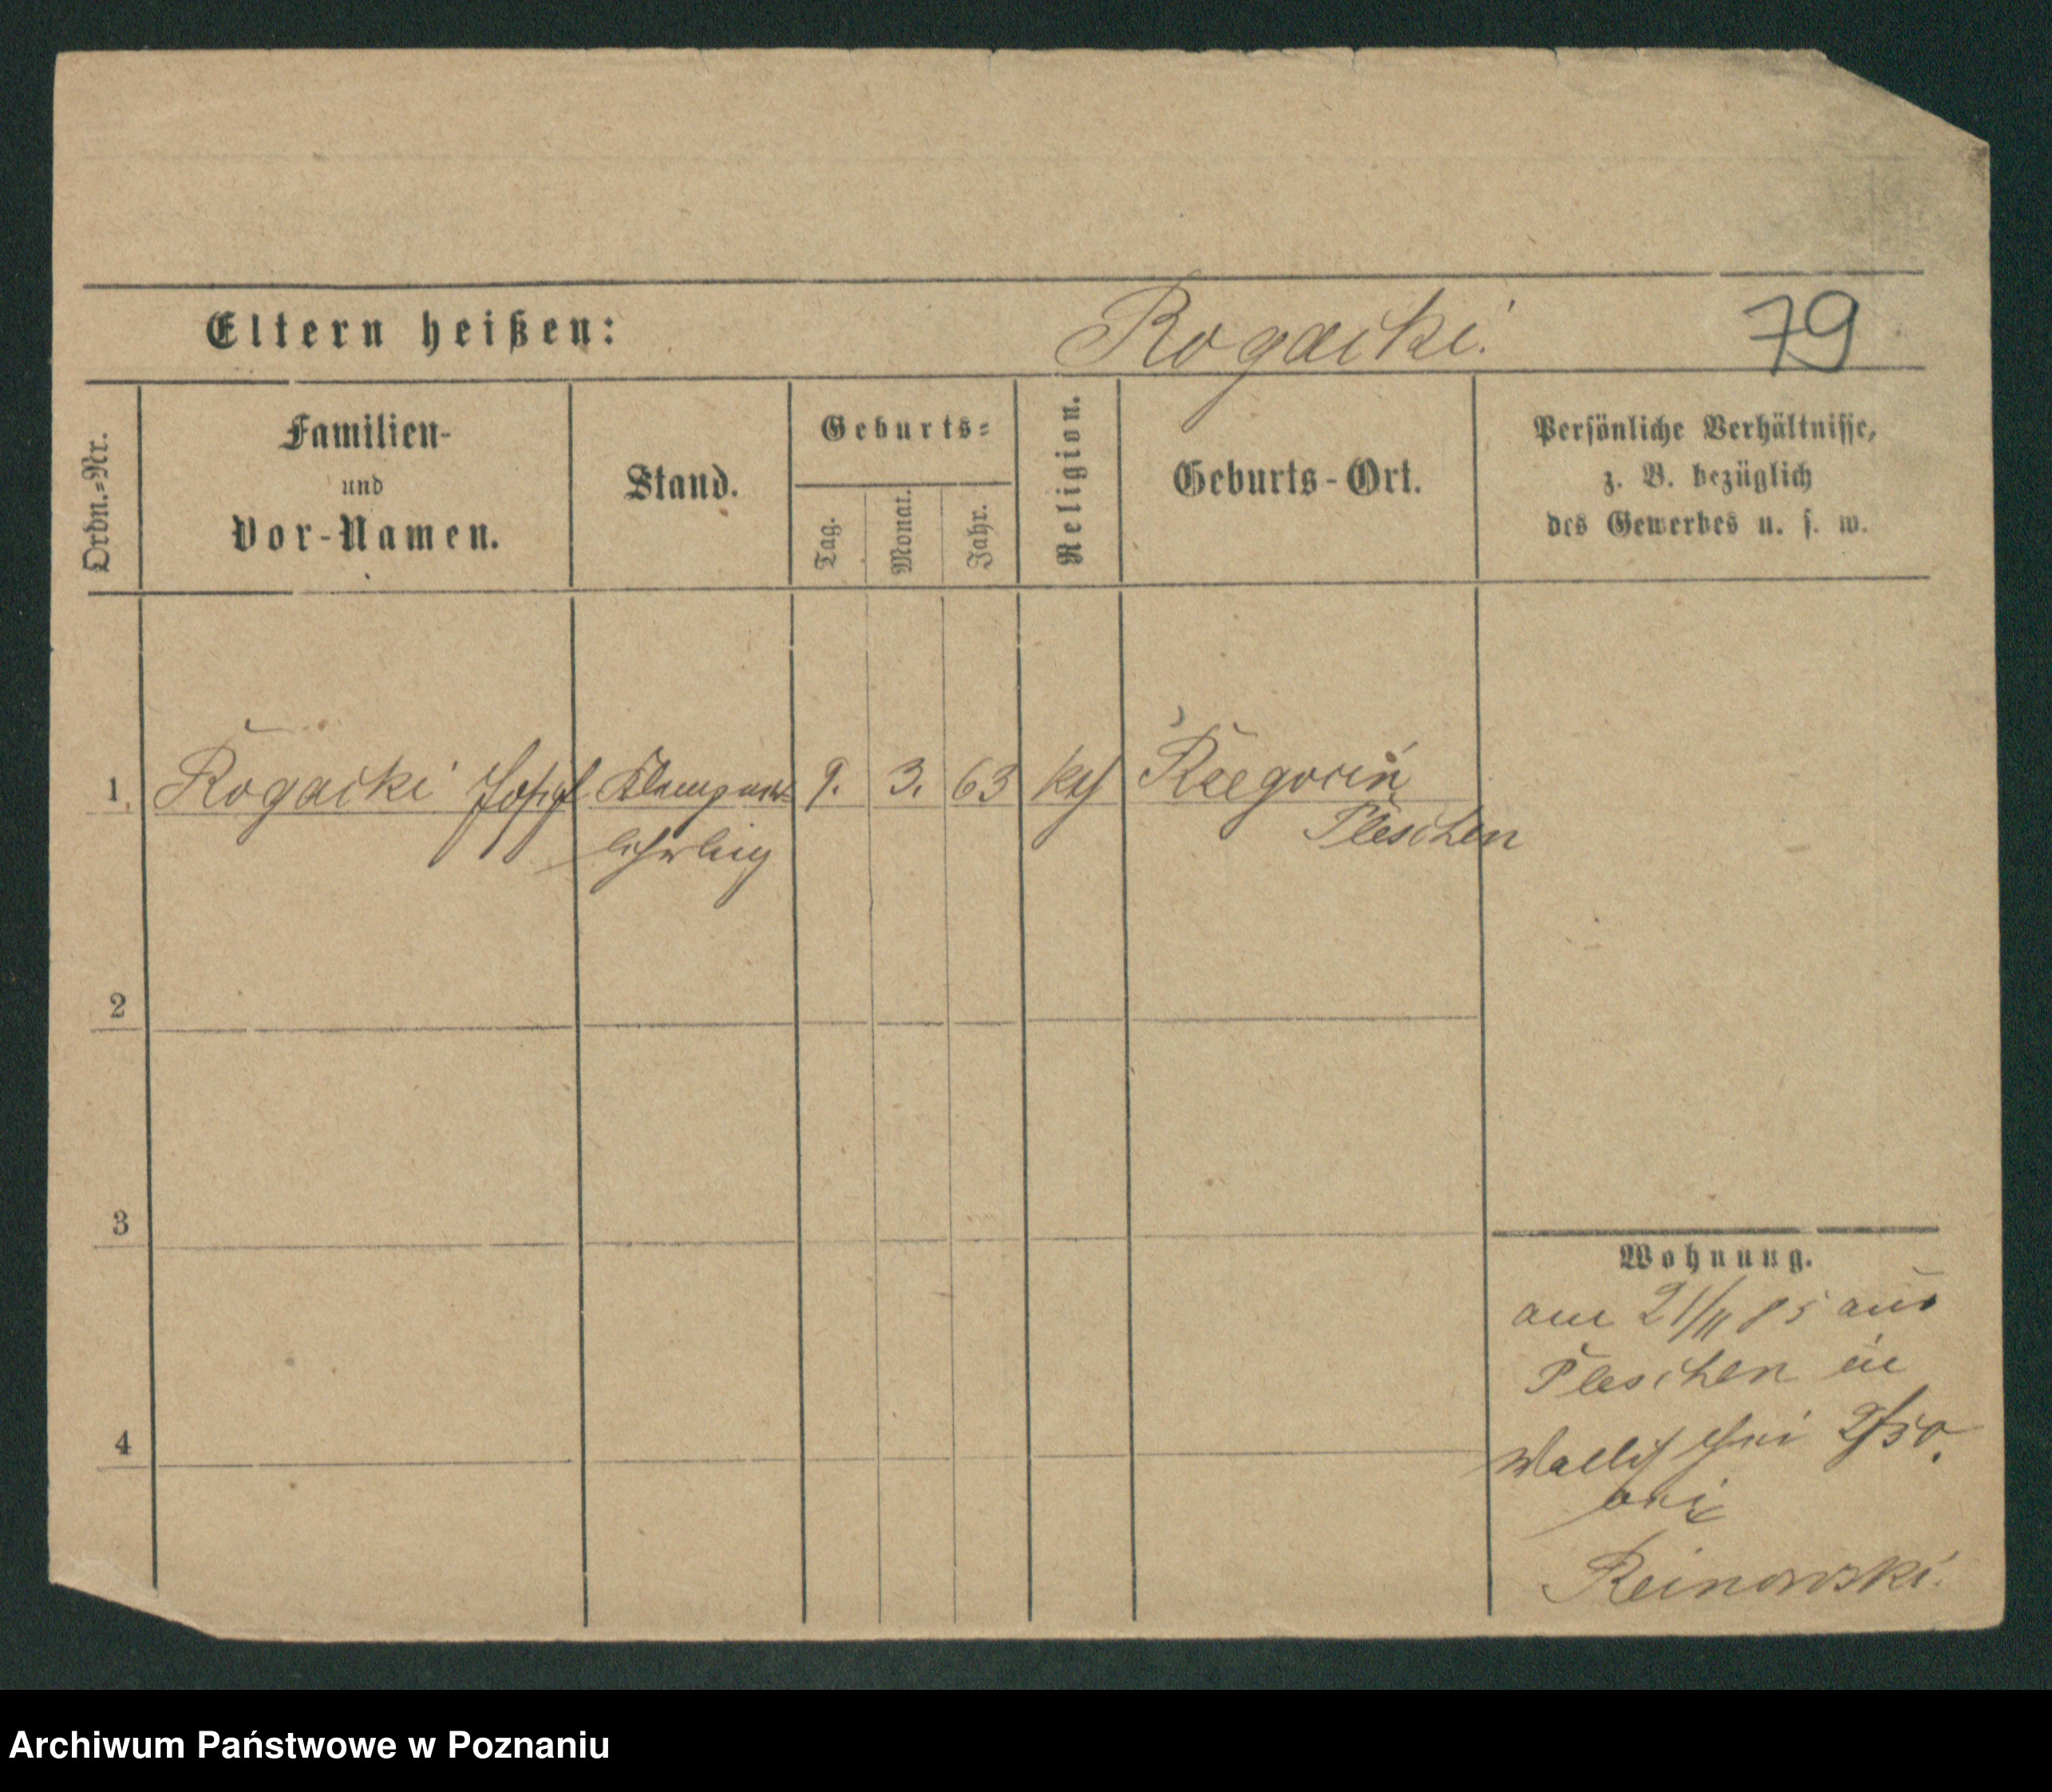 Eltern heißen: Rogacki. 79
Ordn.=Nr.
Familien-
und
Vor-Namen.
Stand.
Geburts=
Tag.
Monat.
Jahr.
Religion.
Geburts-Ort.
Persönliche Verhältnisse,
z. B. bezüglich
des Gewerbes u. s. w.
1. Rogacki Josef 9. 3. 63 kth
lehrling
Pleschen
2
3
4
Wohnung.
am 21/11 85 aus
Pleschen in
Wallischei
bei
Reinowski.
Archiwum Państwowe w Poznaniu